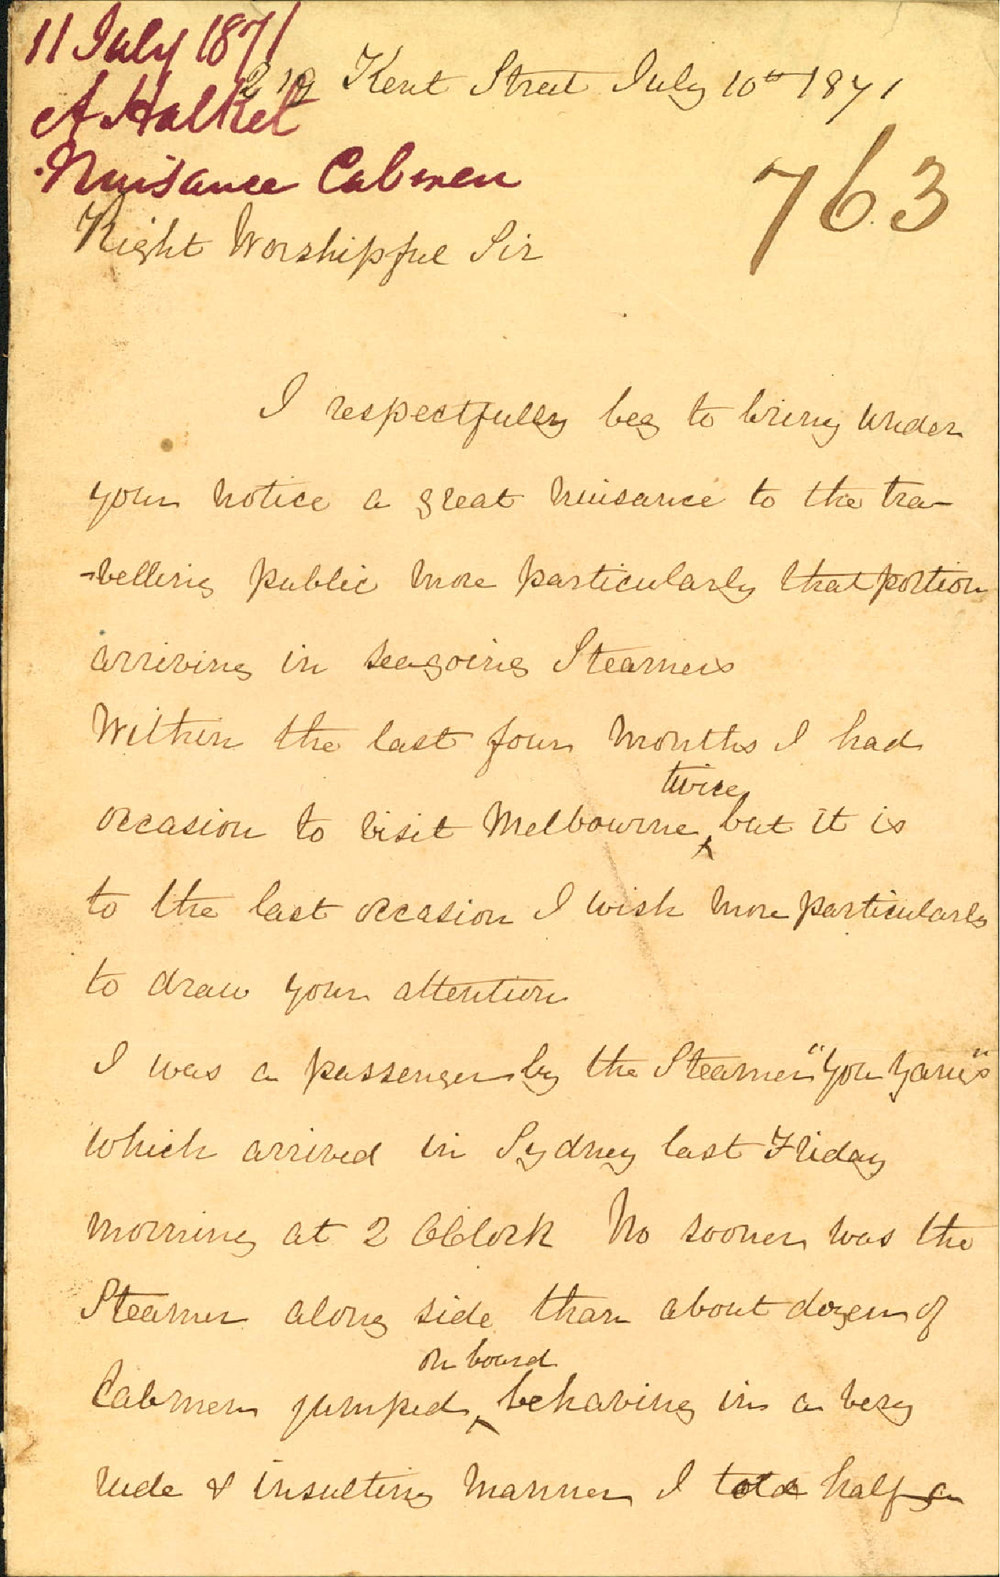 11 July 1871
A Halket
Nuisance Cabmen
219 Kent Street July 10th 1871
763
Right Worshipful Sir
I respectfully beg to bring under
your notice a great nuisance to the tra-
-velling public more particularly that portion
arriving in seagoing Steamers
Within the last four months I had
twice
occasion to visit Melbourne ^ but it is
to the last occasion I wish more particularly
to draw your attention
I was a passenger by the Steamer "You Yangs"
which arrived in Sydney last Friday
morning at 2 OClock No sooner was the
Steamer along side than about dozen of
on board
Cabmen jumped ^ behaving in a very
rude & insulting manner I told half a